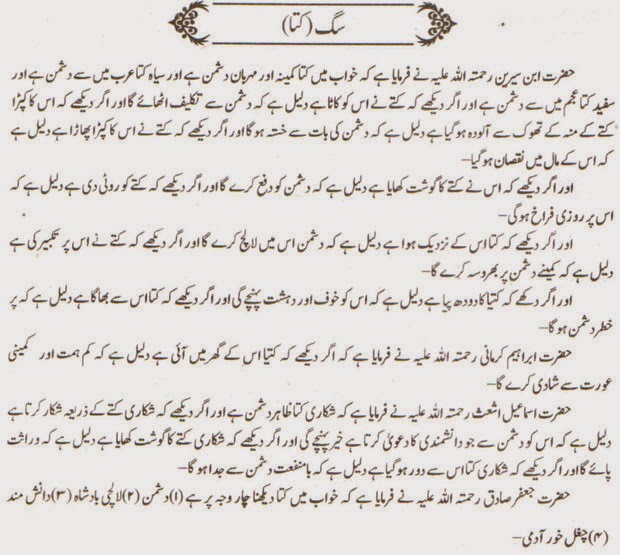 سگ (کتا)
حضرت ابن سیرین رحمتہ اللہ علیہ نے فرمایا ہے کہ خواب میں کتا کمینہ اور مہربان دشمن ہے اور سیاہ کتا عرب میں سے دشمن ہے اور
سفید کتا عجم میں سے دشمن ہے اور اگر دیکھے کہ کتے نے اس کو کاٹا ہے دلیل ہے کہ دشمن سے تکلیف اٹھائے گا اور اگر دیکھے کہ اس کا کپڑا
کتے کے منہ کے تھوک سے آلودہ ہو گیا ہے دلیل ہے کہ دشمن کی بات سے خستہ ہو گا اور اگر دیکھے کہ کتے نے اس کا کپڑا پھاڑا ہے دلیل ہے
کہ اس کے مال میں نقصان ہو گیا۔
اور اگر دیکھے کہ اس نے کتے کا گوشت کھایا ہے دلیل ہے کہ دشمن کو دفع کرے گا اور اگر دیکھے کہ کتے کو روٹی دی ہے دلیل ہے کہ
اس پر روزی فراخ ہو گی۔
اور اگر دیکھے کہ کتا اس کے نزدیک ہوا ہے دلیل ہے کہ دشمن اس میں لالچ کرے گا اور اگر دیکھے کہ کتے نے اس پر تکبیر کی ہے
دلیل ہے کہ کمینے دشمن پر بھروسہ کرے گا۔
اور اگر دکھے کہ کتیا کا دودھ پیا ہے دلیل ہے کہ اس کو خوف اور دہشت پہنچے گی اور اگر دیکھے کہ کتا اس سے بھاگا ہے دلیل ہے کہ پر
خطر دشمن ہو گا۔
حضرت ابراہیم کرمانی رحمتہ اللہ علیہ نے فرمایا ہے کہ اگر دیکھے کہ کتیا اس کے گھر میں آئی ہے دلیل ہے کہ کم ہمت اور کمینی
عورت سے شادی کرے گا۔
حضرت اسماعیل اشعث رحمتہ اللہ علیہ نے فرمایا ہے کہ شکاری کتا ظاہر دشمن ہے اور اگر دیکھے کہ شکاری کتے کے ذریعہ شکار کرتا ہے
دلیل ہے کہ اس کو دشمن سے جو دانشمندی کا دعویٰ کرتا ہے خیر پہنچے گی اور اگر دیکھے کہ شکاری کتے کا گوشت کھایا ہے دلیل ہے کہ وراثت
پائے گا اور اگر دیکھے کہ شکاری کتا اس سے دور ہو گیا ہے دلیل ہے کہ با منفعت دشمن سے جدا ہو گا۔
حضرت جعفر صادق رحمتہ اللہ علیہ نے فرمایا ہے کہ خواب میں کتا دیکھنا چار وجہ پر ہے (۱) دشمن (۲) لالچی بادشاہ (۳) دانش مند
(۴) چغل خور آدمی۔